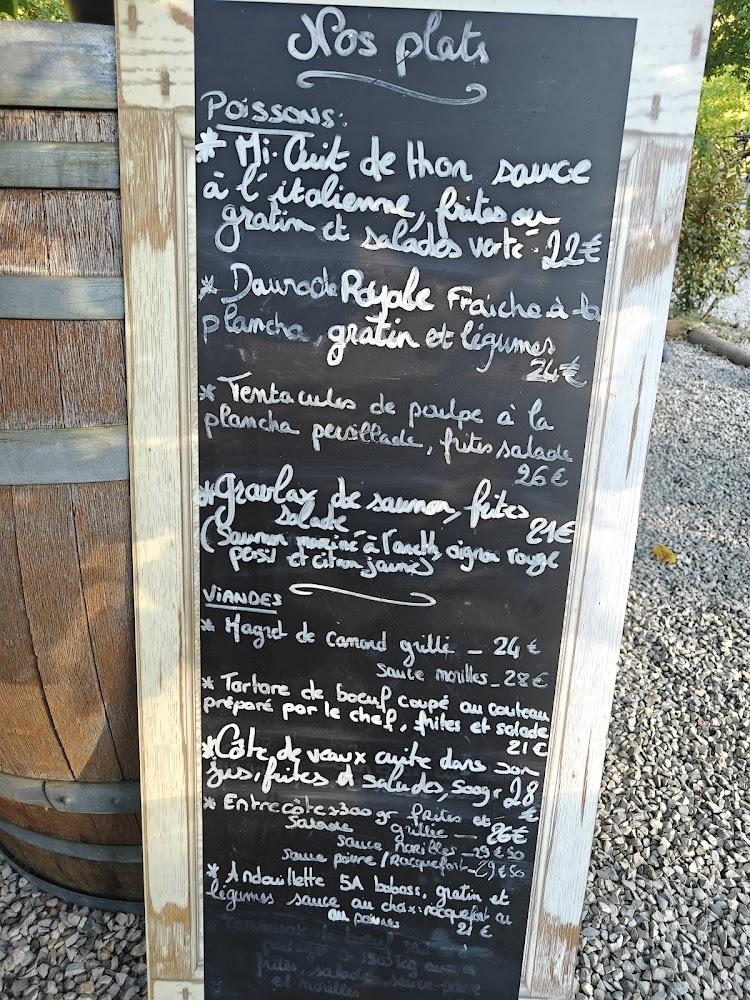 Nos plats
POISSONS:
* Mi-Cuit de thon sauce
à l'italienne, frites ou
gratin et salades verte - 22€
* Daurade Royale Fraîche à la
plancha, gratin et légumes
24€
* Tentacules de poulpe à la
plancha persillade, frites salade
26€
* Gravlax de saumon, frites
salade 21€
(Saumon mariné à l'aneth, oignon rouge
persil et citron jaune)
VIANDES
* Magret de Canard grillé - 24€
sauce morilles - 28€
* Tartare de boeuf coupé au couteau
préparé par le chef, frites et salade
21€
* Côte de veaux cuite dans son
jus, frites et salades, 500gr 28
€
* Entrecôte ±300gr frites et
Salade grillée - 26€
sauce morilles - 29€50
sauce poivre / Rocquefort - 29€50
* Andouillette 5A bobosse, gratin et
légumes sauce au choix: rocquefort ou
au poivres 21€
à boeuf
frites, salade sauce
et morilles